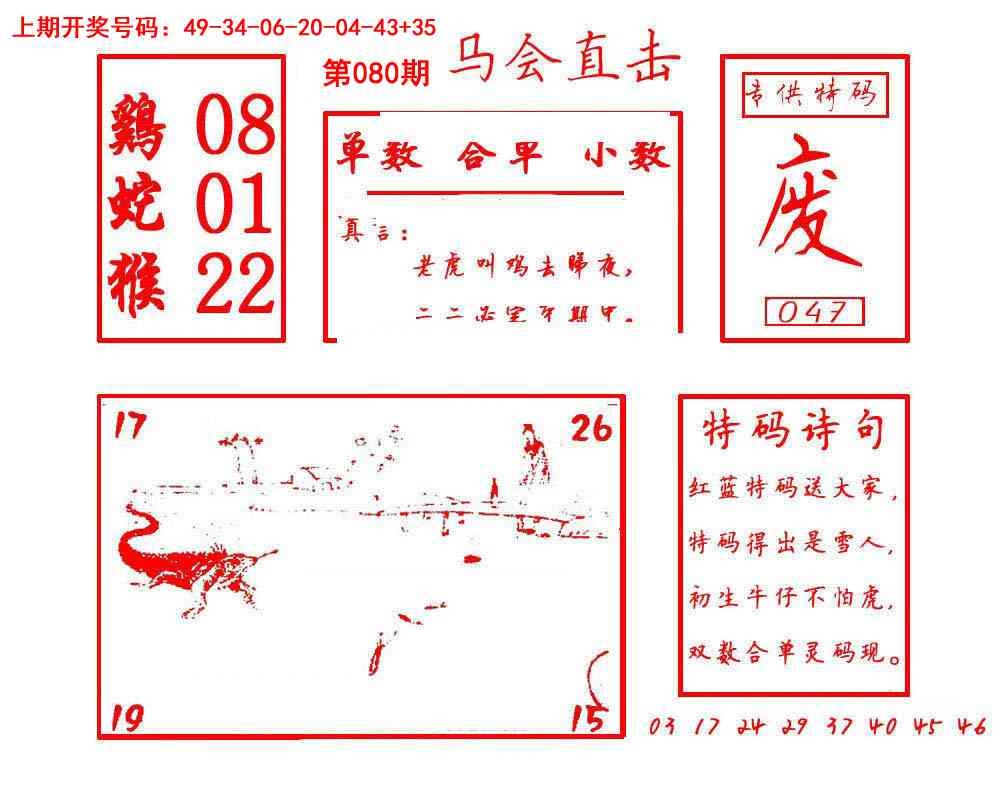 上期开奖号码：49-34-06-20-04-43+35
第080期 马会直击
鷄 08
蛇 01
猴 22
单数 合单 小数
真言：
老虎叫鸡去睇夜，
二二必定年期中。
专供特码
废
047
17
26
19
15
特码诗句
红蓝特码送大家，
特码得出是雪人，
初生牛仔不怕虎，
双数合单灵码现。
03 17 24 29 37 40 45 46